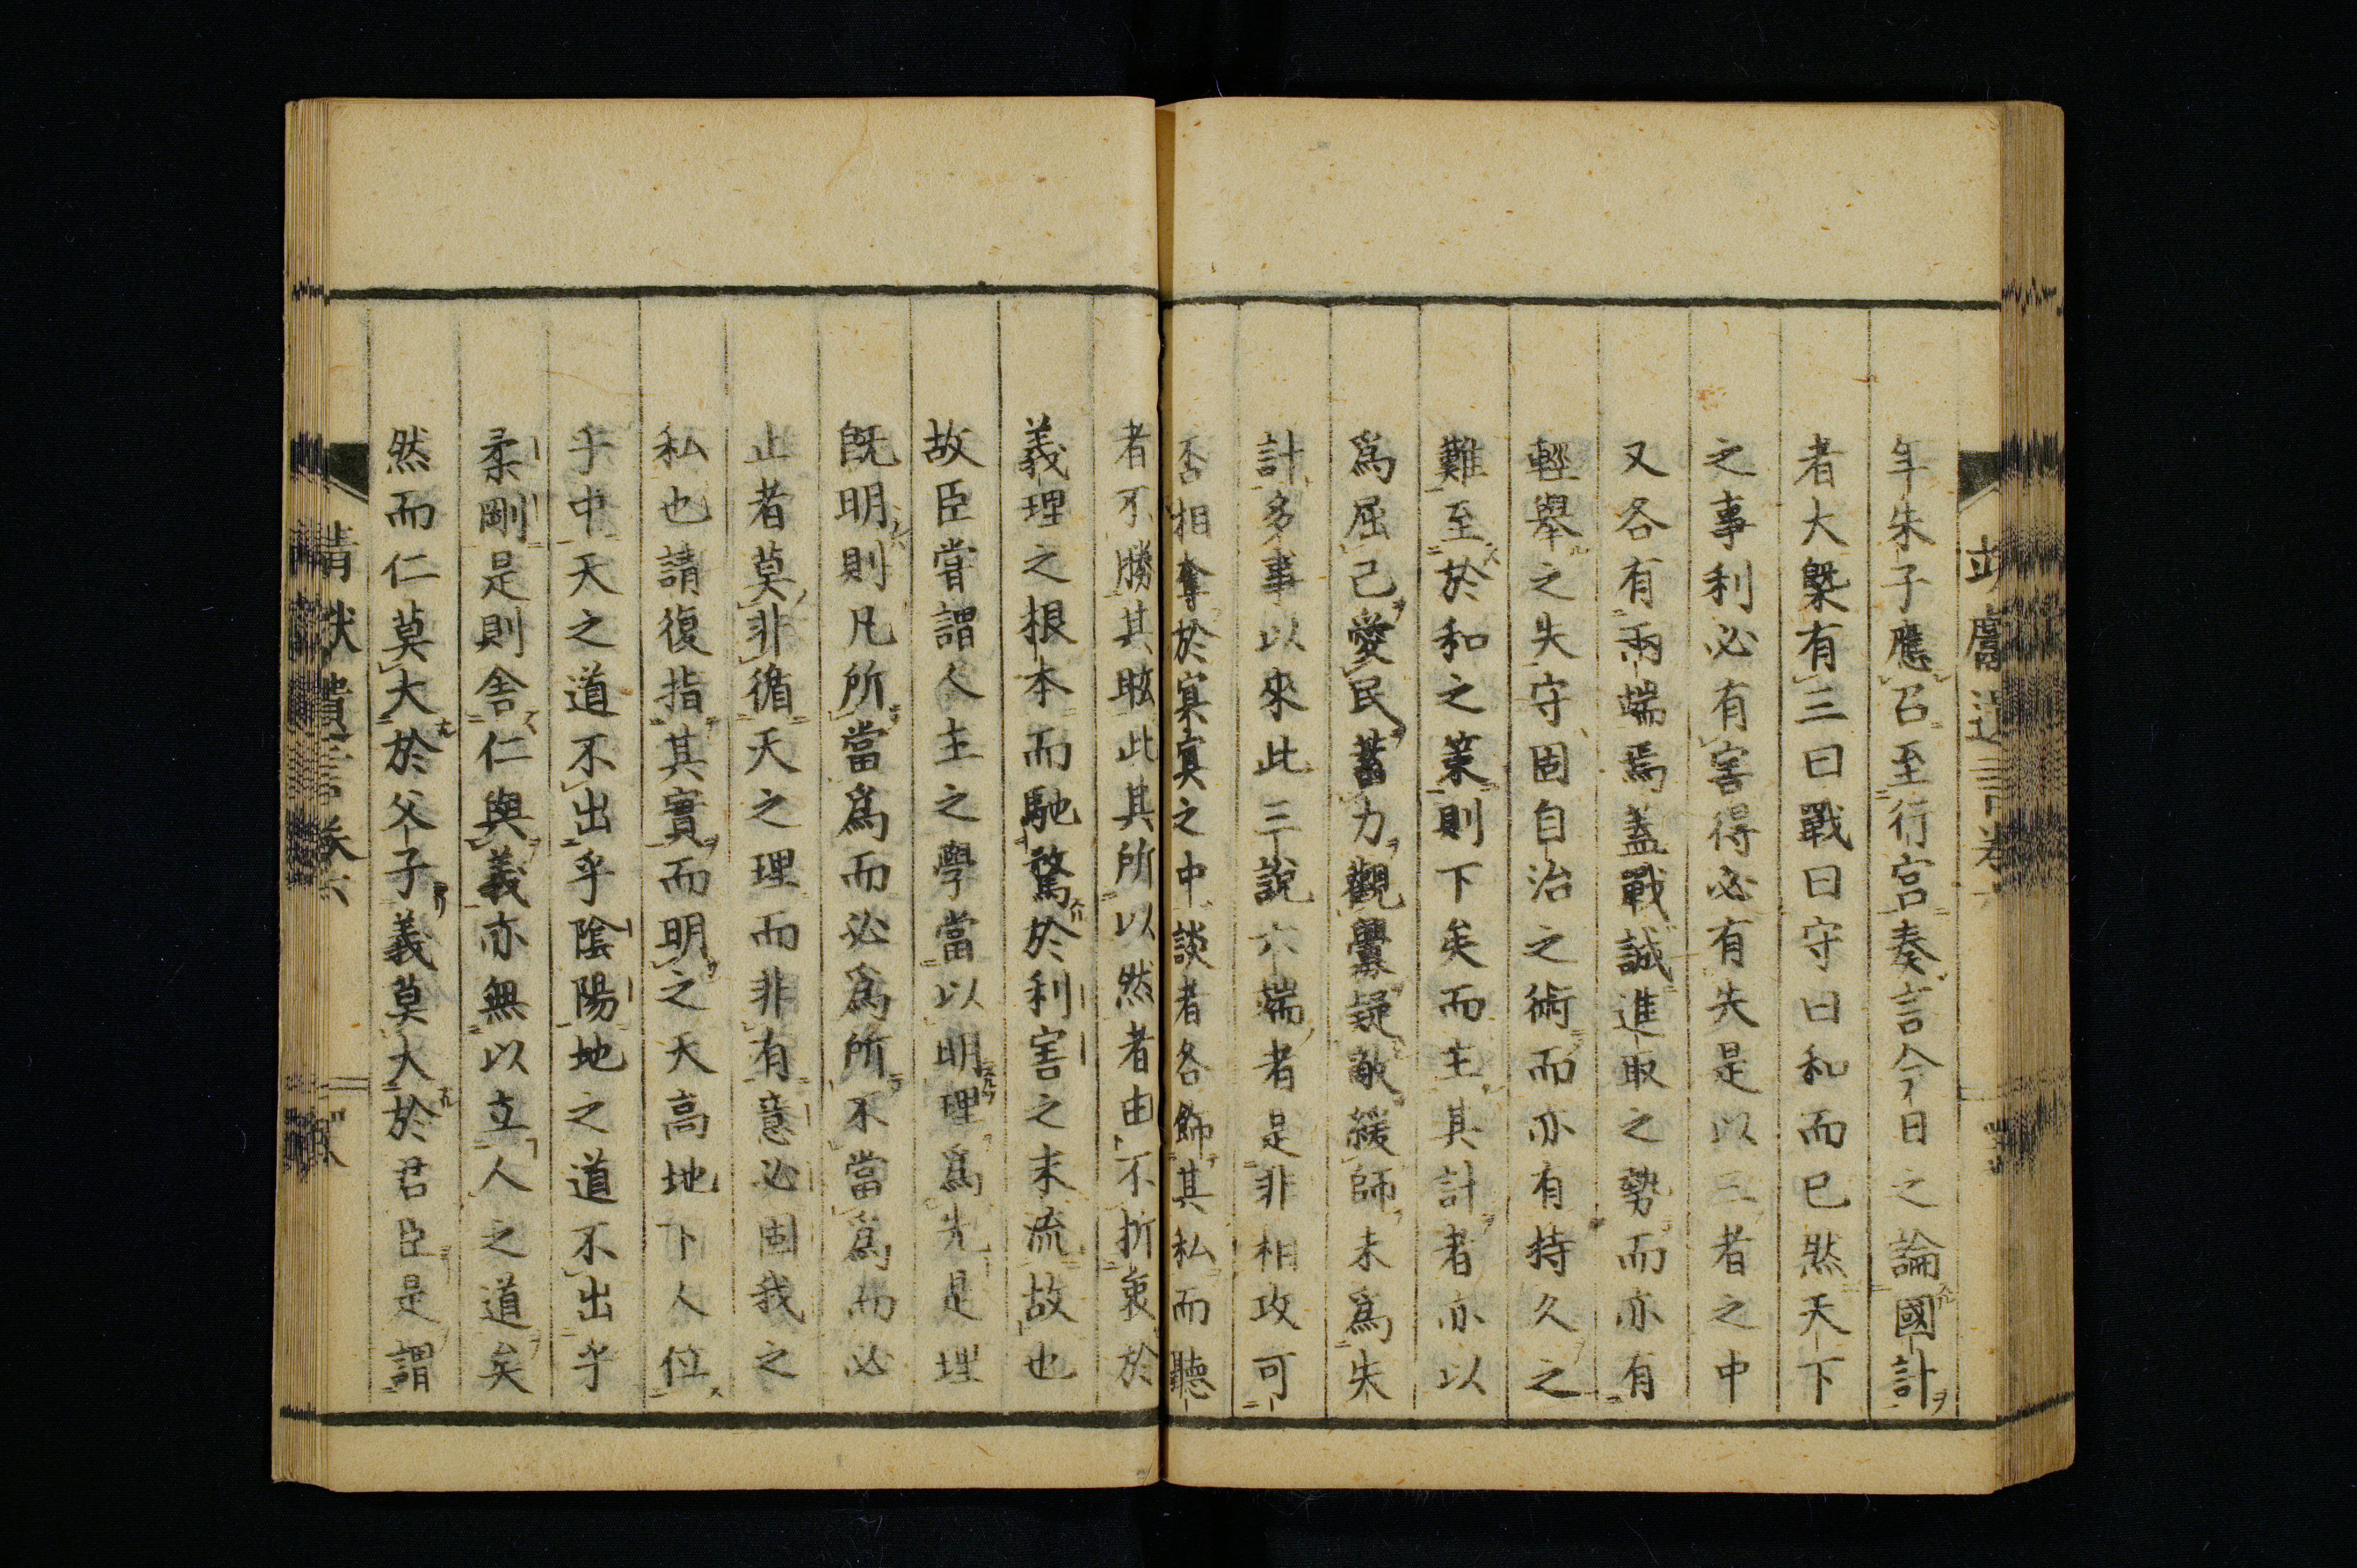 年朱子應召至行宮奏言今日之論國計
者大槩有三曰戰曰守曰和而已然天下
之事利必有害得必有失是以三者之中
又各有兩端焉蓋戰誠進取之勢而亦有
輕舉之失守固自治之術而亦有持久之
難至於和之策則下矣而主其計者亦以
爲屈己愛民蓄力觀釁疑敵緩師未爲失
計多事以來此三說六端者是非相攻可
否相奪於冥冥之中談者各飾其私而聽
者不勝其眩此其所以然者由不折衷於
義理之根本而馳騖於利害之末流故也
故臣嘗謂人主之學當以明理爲先是理
旣明則凡所當爲而必爲所不當爲而必
止者莫非循天之理而非有意必固我之
私也請復指其實而明之天高地下人位
乎中天之道不出乎陰陽地之道不出乎
柔剛是則舍仁與義亦無以立人之道矣
然而仁莫大於父子義莫大於君臣是謂
靖獻遺言卷六